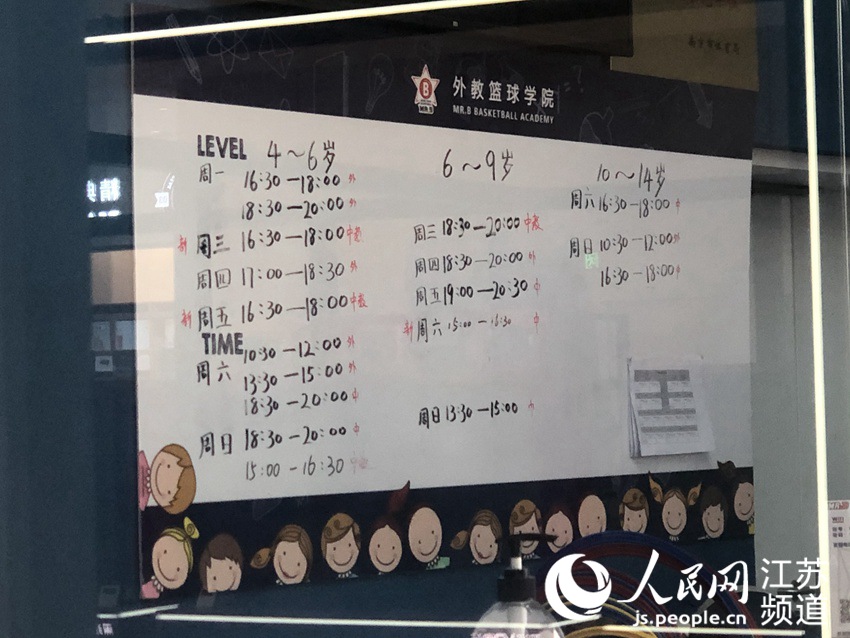 外教篮球学院
MR.B BASKETBALL ACADEMY
B
MR.B
LEVEL 4～6岁
周一 16:30—18:00 外
18:30—20:00 外
新 周三 16:30—18:00 中教
周四 17:00—18:30 外
新 周五 16:30—18:00 中教
TIME
10:30—12:00 外
周六 13:30—15:00 外
18:30—20:00 中
周日 18:30—20:00 中
15:00—16:30 中教
6～9岁
周三 18:30—20:00 中教
周四 18:30—20:00 外
周五 19:00—20:30 中
新 周六 15:00—16:30 中
周日 13:30—15:00 中
10～14岁
周六 16:30—18:00 中
周日 10:30—12:00 外
16:30—18:00 中
人民网 江苏频道
js.people.cn